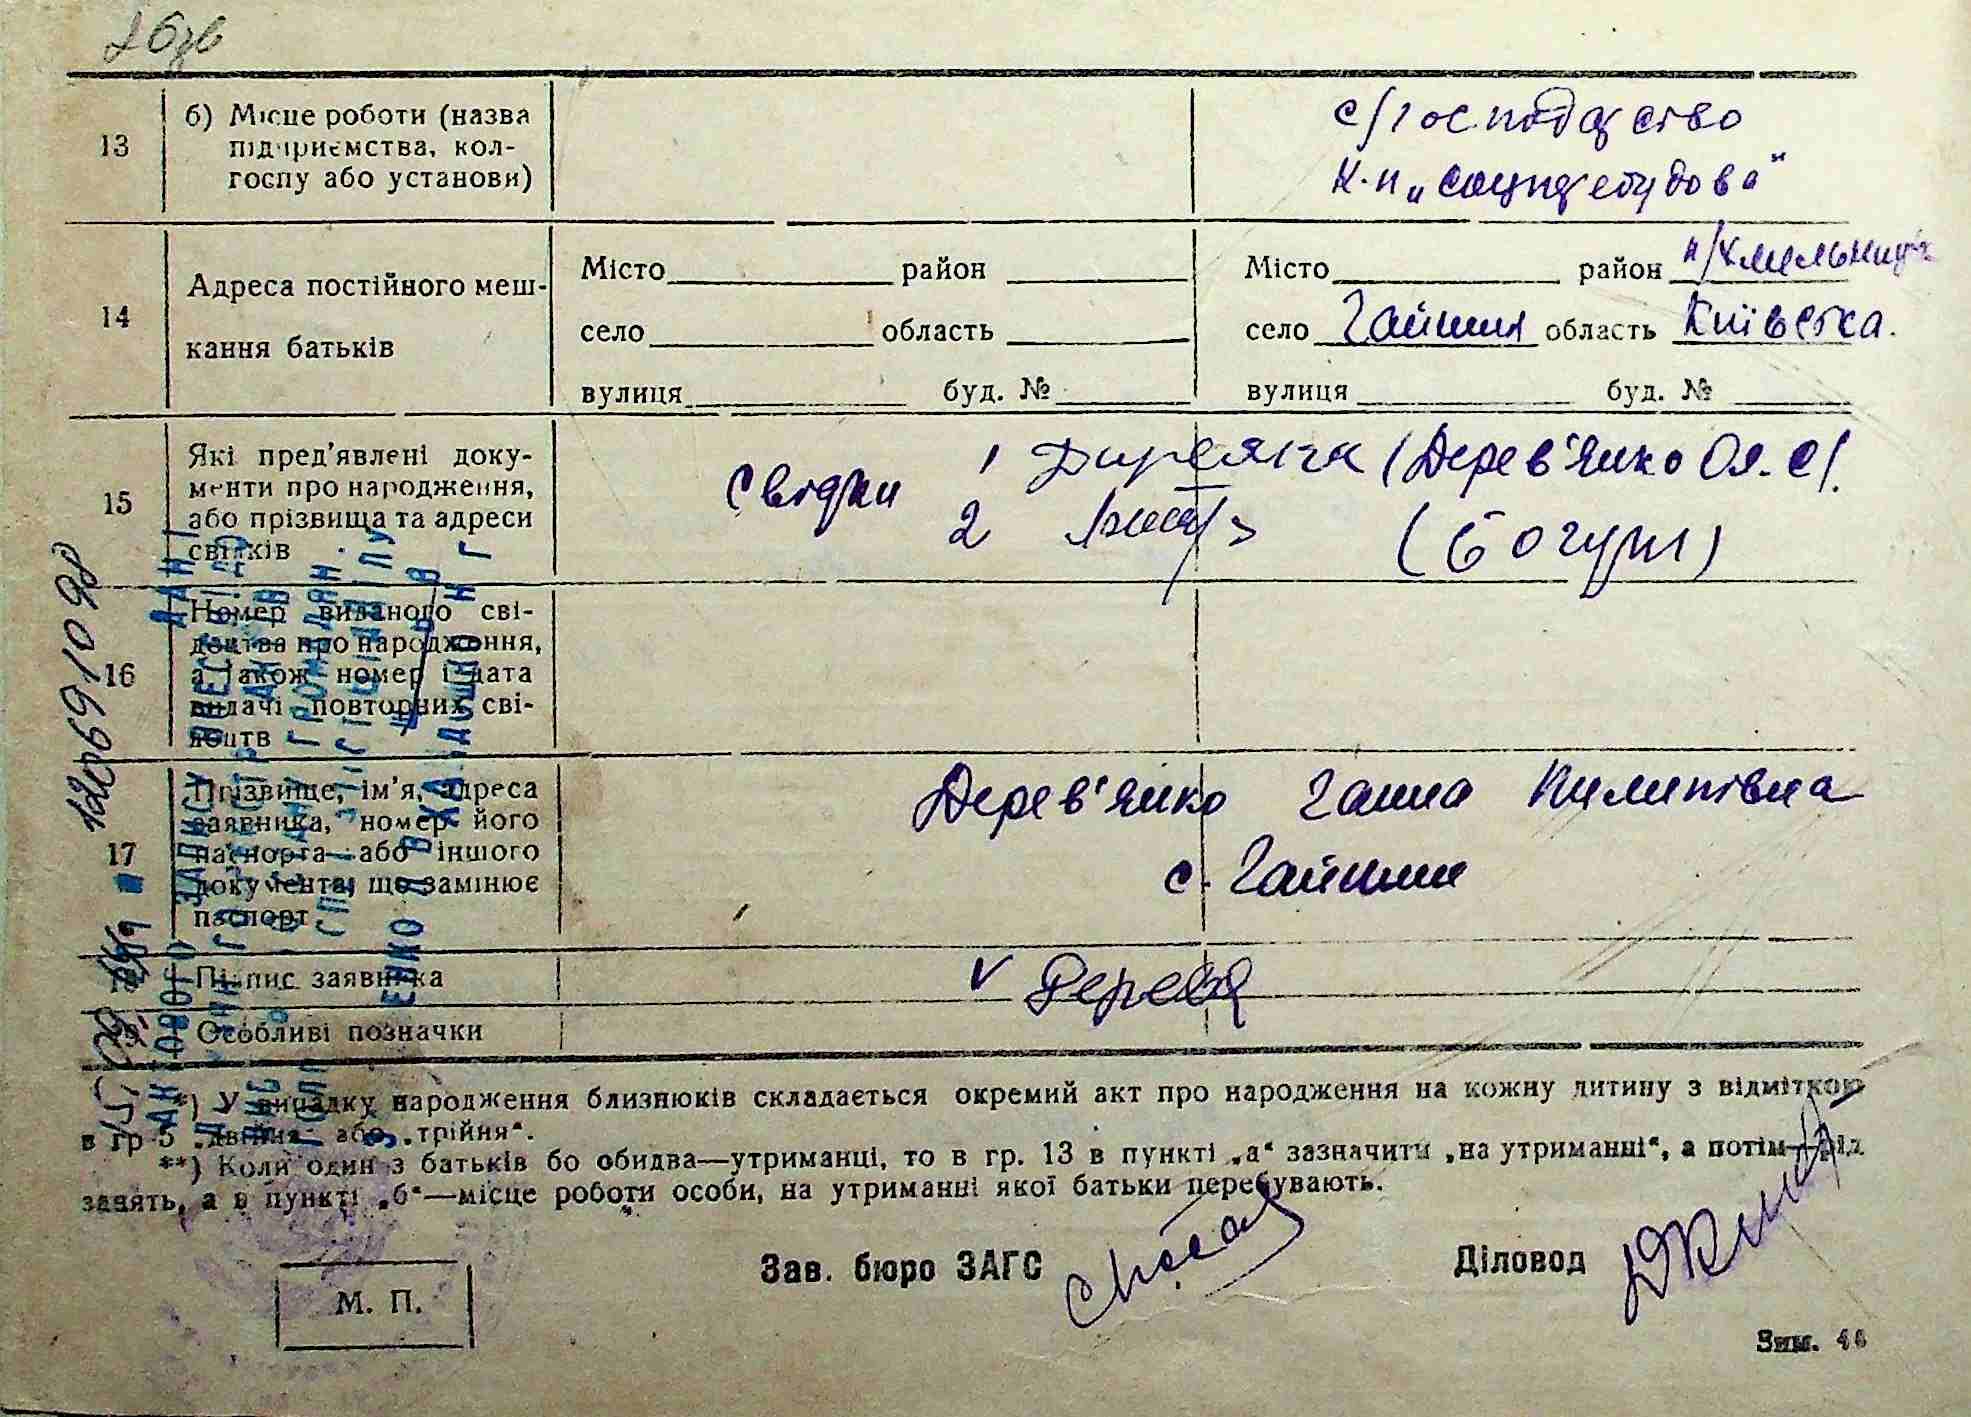 26зв
13
б) Місце роботи (назва
підприємства, кол-
госпу або установи)
с/господарство
к-п „Соцперебудова"
14
Адреса постійного меш-
кання батьків
Місто район
село область
вулиця буд. №
Місто район п/Хмельницьк
село Гайшин область Київська.
вулиця буд. №
15
Які пред'явлені доку-
менти про народження,
або прізвища та адреси
свідків
Свідки 1 (Дерев'янко Ол. С/.
2 (Богун)
16
Номер виданого сві-
доцтва про народження,
а також номер і дата
видачі повторних сві-
доцтв
17
Прізвище, ім'я, адреса
заявника, номер його
паспорта або іншого
документа, що замінює
паспорт
Дерев'янко Ганна Пилипівна
с. Гайшин
Підпис заявника
V Дерев
Особливі позначки
*) У випадку народження близнюків складається окремий акт про народження на кожну дитину з відміткою
в гр 5 „двійня" або „трійня".
**) Коли один з батьків бо обидва—утриманці, то в гр. 13 в пункті „а" зазначити „на утриманні", а потім—рід
занять, а в пункті „б"—місце роботи особи, на утриманні якої батьки перебувають.
Зав. бюро ЗАГС
Діловод
М. П.
Зим. 44